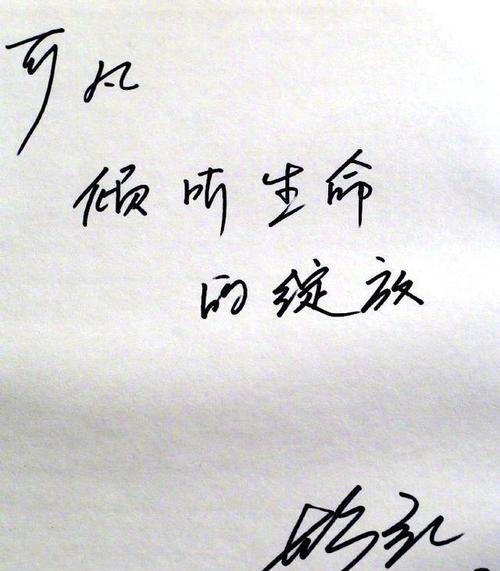 可凡
倾听生命
的绽放